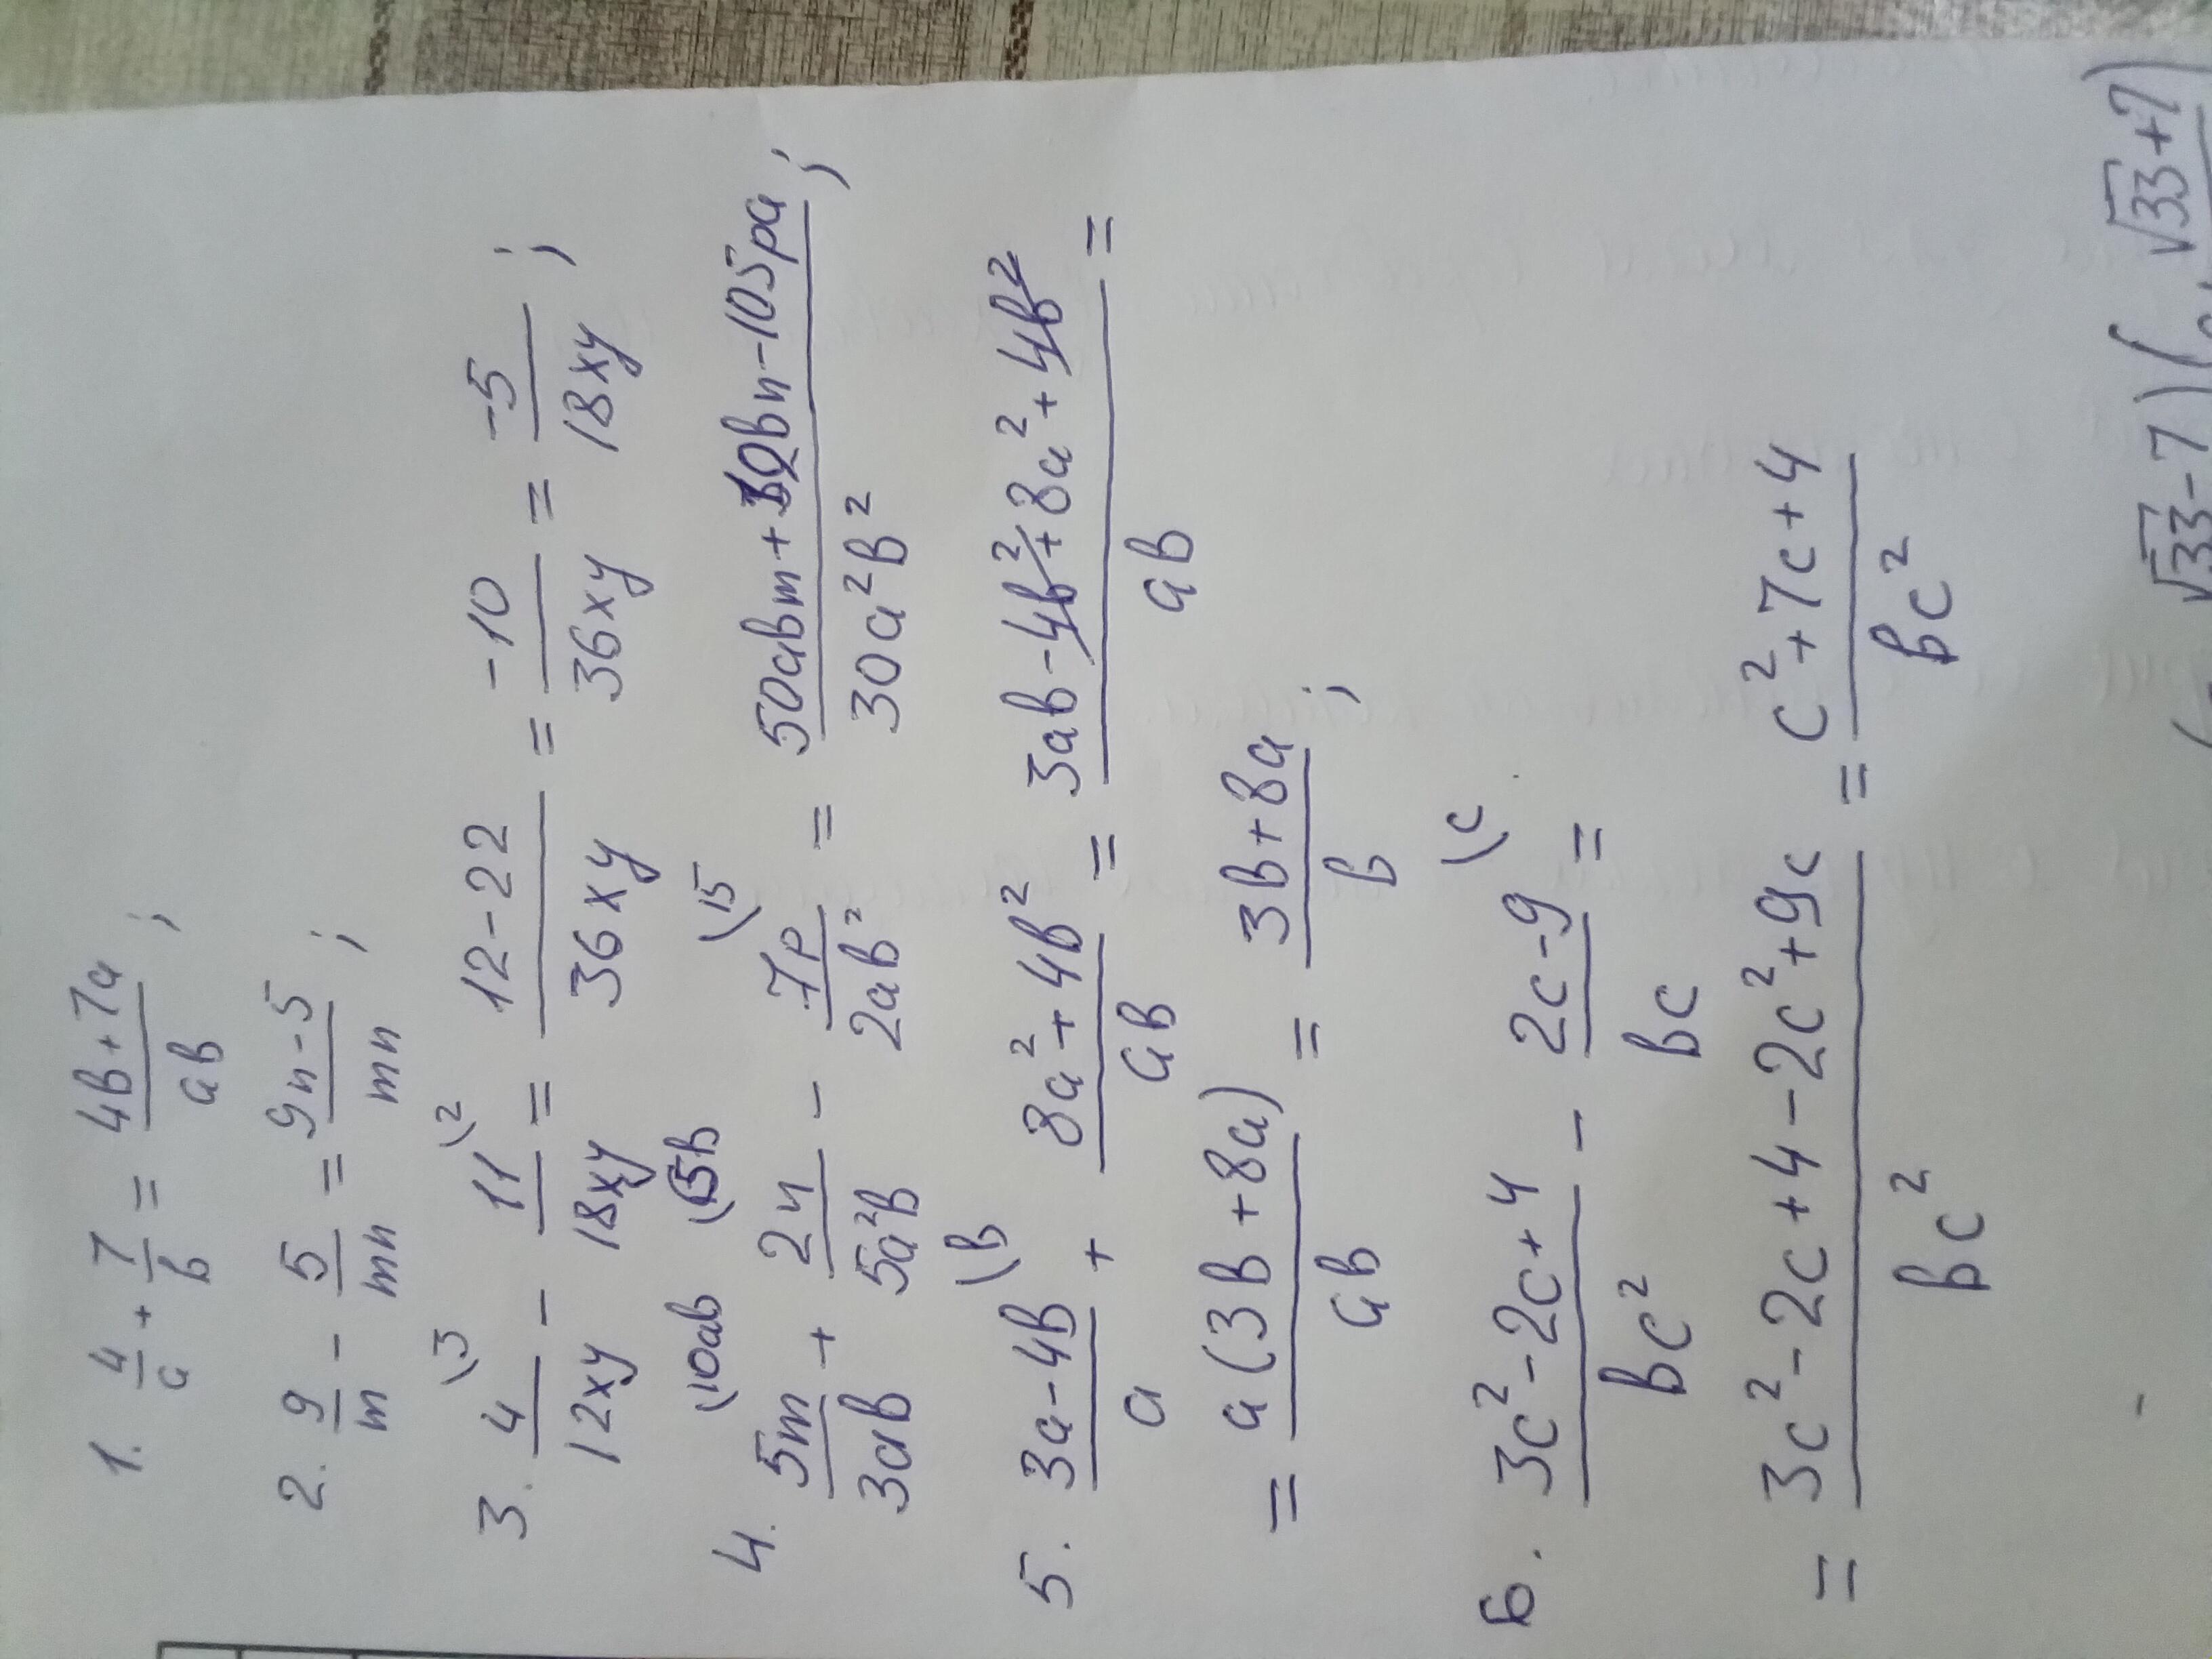 1. 4/a + 7/b = 4b+7a/ab ;
2. 9/m - 5/mn = 9n-5/mn ;
3. 4/12xy \3 - 11/18xy \2 = 12-22/36xy = -10/36xy = -5/18xy ;
4. 5m/3ab \10ab + 2n/5a²b - 7p/2ab² \15 = 50abm+ bn-105pa/30a²b² ;
5. 3a-4b/a \b + 8a²+4b²/ab = 3ab-4b²+8a²+4b²/ab =
= a(3b+8a)/ab = 3b+8a/b ;
6. 3c²-2c+4/bc² - 2c-9/bc \c =
= 3c²-2c+4-2c²+9c/bc² = c²+7c+4/bc²
√33-7)( √33+7)